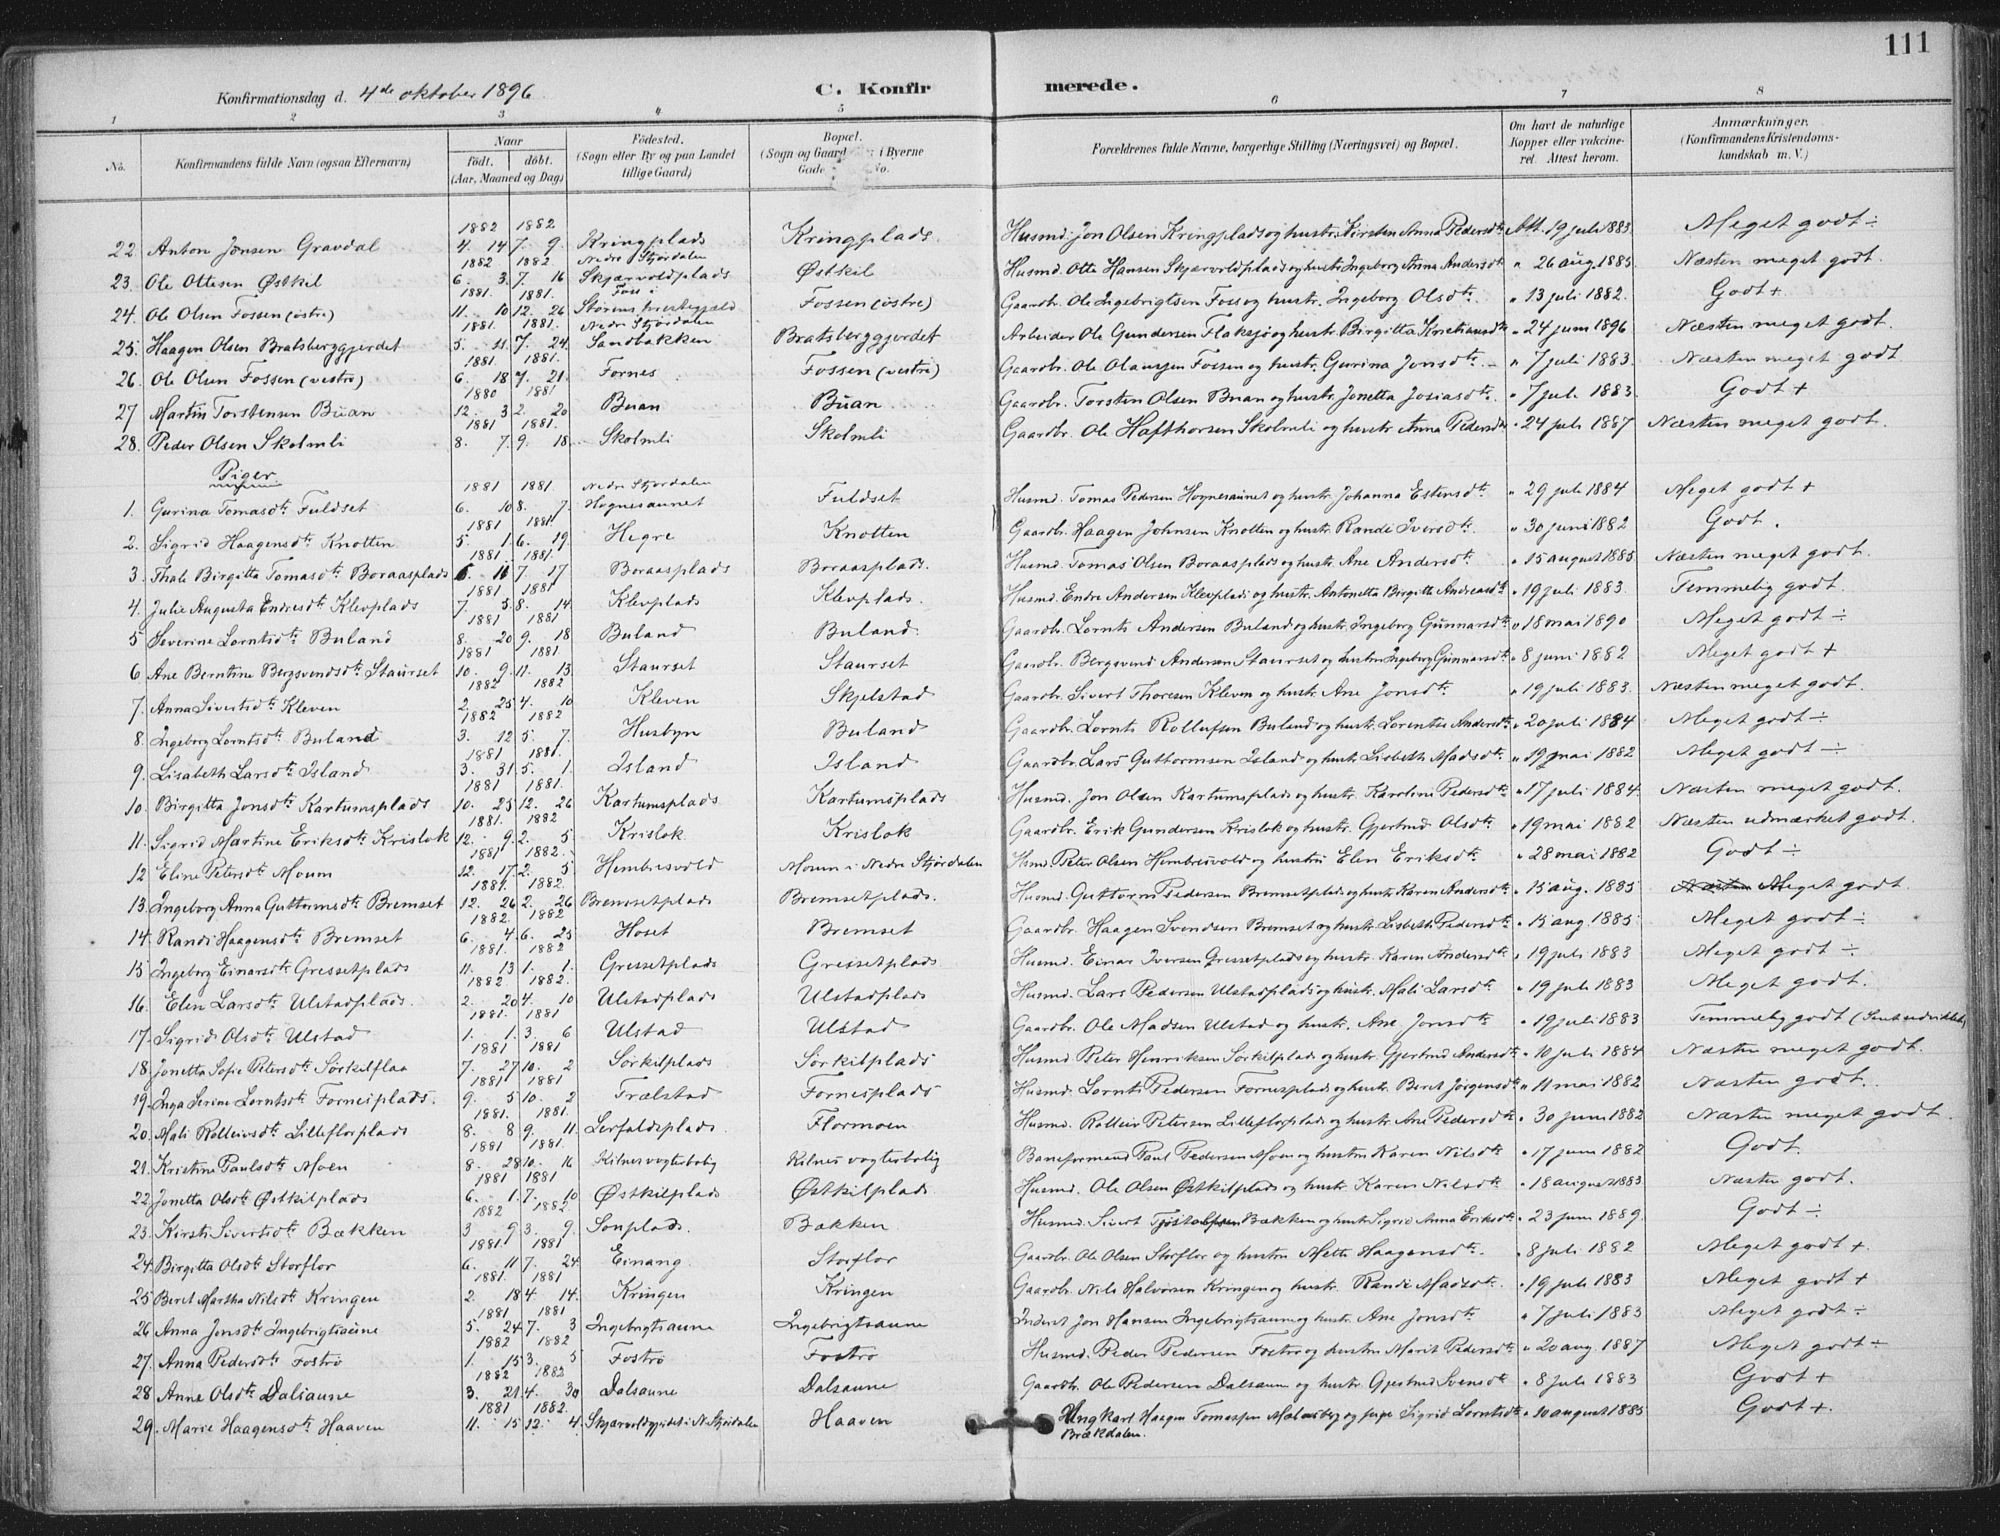 111
Konfirmationsdag d. 4de oktober 1896
C. Konfirmerede.
1 2 3 4 5 6 7 8
No. Konfirmandens fulde Navn (ogsaa Efternavn) Naar født. døbt. (Aar, Maaned og Dag) Fødested. (Sogn eller By og paa Landet tillige Gaard) Bopæl. (Sogn og Gaard i Byerne Gade No. Forældrenes fulde Navne, borgerlige Stilling (Næringsvei) og Bopæl. Om havt de naturlige Kopper eller vakcineret. Attest herom. Anmærkninger. (Konfirmandens Kristendomskundskab m. V.)
22 Anton Jonsen Gravdal 1882 4. 14 1882 7. 9. Kringplads Kringplads. Husmd. Jon Olsen Kringplads og hustr. Kirsten Anna Pedersdtr Att. 19 juli 1883. Meget godt ÷
23. Ole Ottesen Østkil 1882 6. 3. 1882 7. 16 Nedre Stjørdalen Skjærvoldplads Østkil Husmd. Otte Hansen Skjærvoldplads og hustr. Ingeborg Anna Andersdtr " 26 aug. 1885. Næsten meget godt.
24. Ole Olsen Fossen (østre) 1881. 11. 10 1881. 12. 26 Foss i Størens præstegjæld Fossen (østre) Gaardbr. Ole Ingebrigtsen Foss og hustr. Ingeborg Olsdtr. " 13 juli 1882. Godt +
25. Haagen Olsen Bratsberggjerdet 1881. 5. 11. 1881. 7. 24. Nedre Stjørdalen Sandbakken Bratsberggjerdet Arbeider Ole Gundersen Flaksjø og hustr. Birgitta Kristiansdtr " 24 juni 1896 Næsten meget godt.
26. Ole Olsen Fossen (vestre) 1881. 6. 18 1881. 7. 21. Fornes Fossen (vestre) Gaardbr. Ole Olaussen Fossen og hustr. Gurina Jonsdtr. " 7 juli 1883. Næsten meget godt
27 Martin Torstensen Buan 1880 12. 3 1881 2. 20 Buan Buan Gaardbr. Torsten Olsen Buan og hustr. Jonetta Josiasdtr. " 7 juli 1883. Godt +
28. Peder Olsen Skolmli 1881 8. 7. 1881. 9. 18. Skolmli Skolmli Gaardbr. Ole Hafthorsen Skolmli og hustr. Anna Pedersdtr " 24 juli 1887 Næsten meget godt.
Piger
1. Gurina Tomasdtr. Fuldset 1881 6. 10 1881. 8. 7. Nedre Stjørdalen Hognesaunet Fuldset Husmd. Tomas Pedersen Hognesaunet og hustr. Johanna Estensdtr " 29 juli 1884 Meget godt +
2. Sigrid Haagensdtr. Knotten 1881 5. 1. 1881 6. 19 Hegre Knotten Gaardbr. Haagen Johnsen Knotten og hustr. Randi Iversdtr. " 30 juni 1882 Godt.
3. Thale Birgitta Tomasdtr. Boraasplads 1881 6. 11 1881. 7. 17 Boraasplads Boraasplads. Husmd. Tomas Olsen Boraasplads og hustr. Ane Andersdtr. " 15 august 1885 Næsten meget godt.
4. Julie Augusta Endresdtr. Klevplads 1881 7. 5. 1881 8. 14 Klevplads Klevplads. Husmd. Endre Andersen Klevplads og hustr. Antonetta Birgitta Andreasdtr " 19 juli 1883. Temmelig godt.
5 Severine Lorntsdtr. Buland 1881 8. 20 1881 9. 18 Buland Buland. Gaardbr. Lornts Andersen Buland og hustr. Ingeborg Gunnarsdtr " 18 mai 1890 Meget godt ÷
6 Ane Berntine Bergsvendsdtr. Staurset 1881 10. 9. 1881. 11. 13 Staurset Staurset Gaardbr. Bergsvend Andersen Staurset og hustru Ingeborg Gunnarsdtr " 8 juni 1882 Meget godt +
7. Anna Sivertsdtr. Kleven 1882 2. 25 1882 4. 10 Kleven Skjelstad Gaardbr. Sivert Thoresen Kleven og hustr. Ane Jonsdtr. " 19 juli 1883. Næsten meget godt.
8. Ingeborg Lorntsdtr. Buland 1882 3. 12 1882 5. 7. Husbyn Buland Gaardbr. Lornts Rollufsen Buland og hustr. Lorentse Andersdtr. " 20 juli 1884 Meget godt ÷
9. Lisabeth Larsdtr. Island 1881 3. 31. 1881. 5. 1. Island Island Gaardbr. Lars Guttormsen Island og hustr. Lisbeth Madsdtr. " 19 mai 1882 Meget godt ÷
10. Birgitta Jonsdtr. Kartumsplads 1881 10. 25 1881. 12. 26 Kartumsplads Kartumsplads Husmd. Jon Olsen Kartumsplads og hustr. Karoline Pedersdtr. " 17 juli 1884. Næsten meget godt.
11. Sigrid Martine Eriksdtr. Krislok 1881. 12. 9. 1882 2. 5 Krislok Krislok Gaardbr. Erik Gundersen Krislok og hustr. Gjertrud Olsdtr. " 19 mai 1882 Næsten udmærket godt.
12 Eline Petersdtr. Moum 1881 12. 17. 1882. 2. 5. Hembresvold Moum i Nedre Stjørdalen Hsmd. Peter Olsen Hembresvold og hustru Elen Eriksdtr. " 28 mai 1882 Godt ÷
13. Ingeborg Anna Guttormsdtr. Bremset 1881. 12. 26 1882. 2. 26 Bremsetplads Bremsetplads. Husmd. Guttorm Pedersen Bremsetplads og hustr. Karen Andersdtr. " 15 aug. 1885 Næsten Meget godt.
14. Randi Haagensdtr. Bremset 1882. 6. 4. 1882 6. 25 Hoset Bremset Gaardbr. Haagen Svendsen Bremset og hustr. Lisbeth Pedersdtr. " 15 aug. 1885. Meget godt ÷
15 Ingeborg Einarsdtr. Gressetplads 1881. 11. 13 1882 1. 1. Gressetplads Gressetplads Husmd. Einar Iversen Gressetplads og hustr. Karen Andersdtr. " 19 juli 1883 Meget godt ÷
16. Elen Larsdtr. Ulstadplads. 1882. 2. 20 1882. 4. 10 Ulstadplads Ulstadplads Husmd. Lars Pedersen Ulstadplads og hustr. Mali Larsdtr " 19 juli 1883 Meget godt.
17. Sigrid Olsdtr. Ulstad 1881. 1. 1. 1881 3. 6 Ulstad Ulstad Gaardbr. Ole Madsen Ulstad og hustr. Ane Jonsdtr. " 19 juli 1883 Temmelig godt (Sent udviklet)
18. Jonetta Sofie Petersdtr. Sørkilflaa 1881 7. 27 1881 10. 2 Sørkilplads Sørkilplads Husmd. Peter Henriksen Sørkilplads og hustr. Gjertrud Andersdtr. " 10 juli 1884 Næsten meget godt.
19. Inga Serine Lorntsdtr. Fornesplads. 1881 9. 5 1881 10. 2 Trælstad Fornesplads Husmd. Lornts Pedersen Fornesplads og hustr. Beret Jørgensdtr. " 11 mai 1882 Næsten godt.
20. Mali Rolleivsdtr. Lilleflorplads 1881. 8. 8 1881. 9. 11. Lerfaldsplads. Flormoen Husmd. Rolleiv Petersen Lilleflorplads og hustr. Ane Pedersdtr. " 30 juni 1882 Næsten meget godt.
21. Kristine Paulsdtr. Moen 1881 8. 28 1881. 10. 16 Kilnes vogterbolig Kilnes vogterbolig Baneformand Paul Pedersen Moen og hustru Karen Nilsdtr. " 17 juni 1882 Godt.
22. Jonetta Olsdtr. Østkilplads 1881 6. 1. 1881 7. 10 Østkilplads Østkilplads Husmd. Ole Olsen Østkilplads og hustr. Karen Nilsdtr. " 18 august 1883 Næsten godt.
23. Kirsti Sivertsdtr. Bækken 1882 3 9 1882. 3. 9. Sonplads. Bækken Husmd. Sivert Bækken og hustr. Sigrid Anna Eriksdtr. " 23 juni 1889. Godt ÷
24. Birgitta Olsdtr. Storflor 1881. 6. 11 1881 7. 24 Einang Storflor Gaardbr. Ole Olsen Storflor og hustru Mette Haagensdtr. " 8 juli 1882 Meget godt +.
25 Beret Martha Nilsdtr. Kringen 1881. 2. 18 1881 4. 14. Kringen Kringen Gaardbr. Nils Halvorsen Kringen og hustr. Randi Madsdtr. " 19 juli 1883 Meget godt +
26 Anna Jonsdtr. Ingebrigtsaune 1881 5. 24 1881 7. 3 Ingebrigtsaune Ingebrigtsaune Inderst Jon Hansen Ingebrigtsaune og hustr. Ane Jonsdtr. " 7 juli 1883 Meget godt ÷
27. Anna Pedersdtr. Fostrø 1882 1. 15 1882 3. 5 Fostrø Fostrø Husmd. Peder Pedersen Fostrø og hustru Marit Pedersdtr. " 20 aug. 1887 Meget godt ÷
28 Anne Olsdtr. Dalsaune 1882 3. 21 1882 4. 30 Dalsaune Dalsaune Gaardbr. Ole Pedersen Dalsaune og hustr. Gjertrud Svensdtr. " 8 juli 1883 Godt +
29. Marie Haagensdtr. Haaven 1881 11. 15 1882. 12. 4. Skjærvoldgjerdet i N. Stjørdalen Haaven Ungkarl Haagen Tomassen og pige Sigrid Lorntsdtr. " 10 august 1885 Godt +.
Brækdalen.